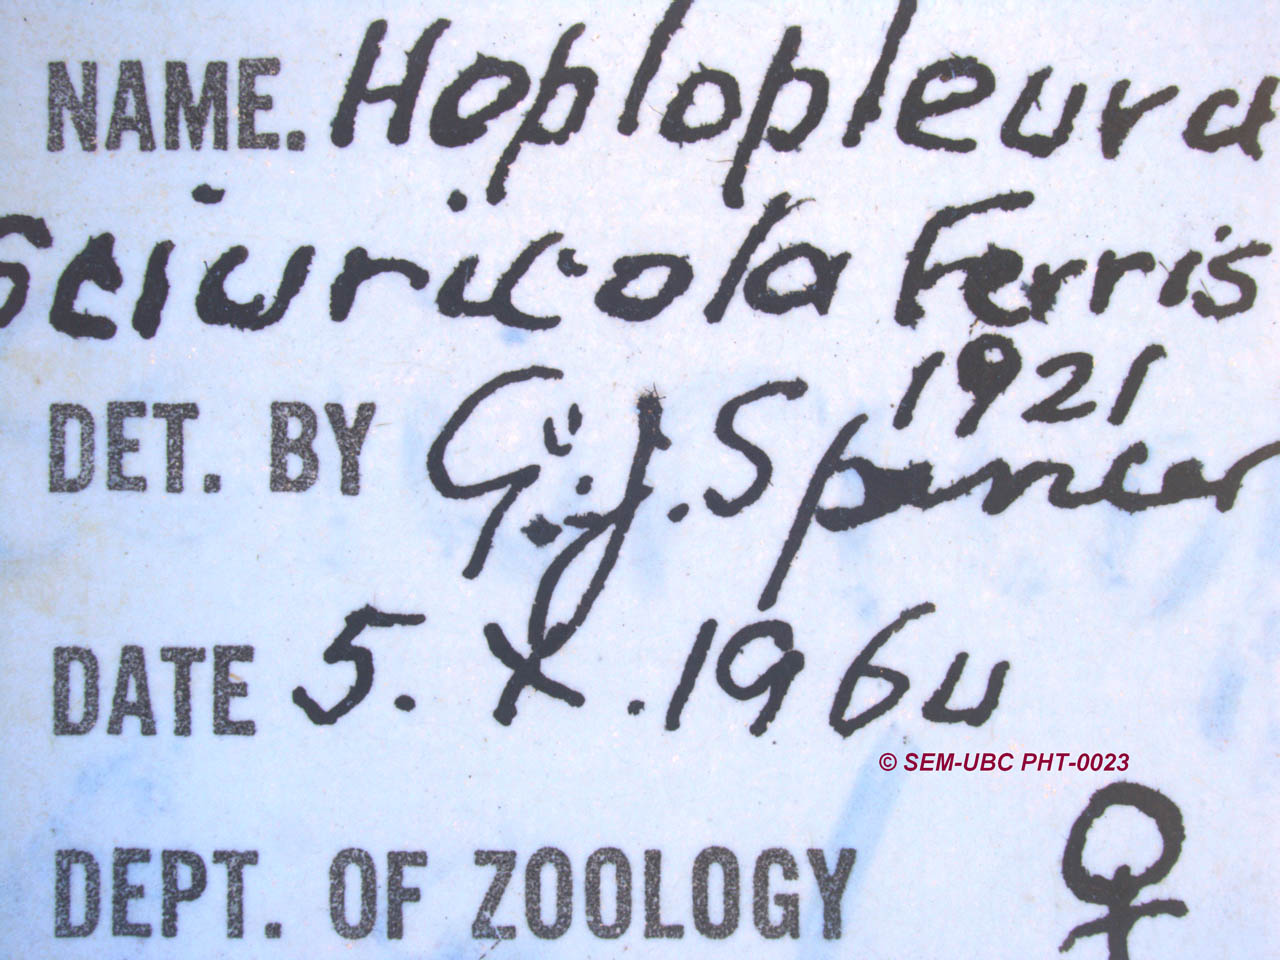 NAME. Hoplopleura
Sciuricola Ferris
1921
DET. BY G.J. Spencer
DATE 5. X. 1964
© SEM-UBC PHT-0023
DEPT. OF ZOOLOGY ♀